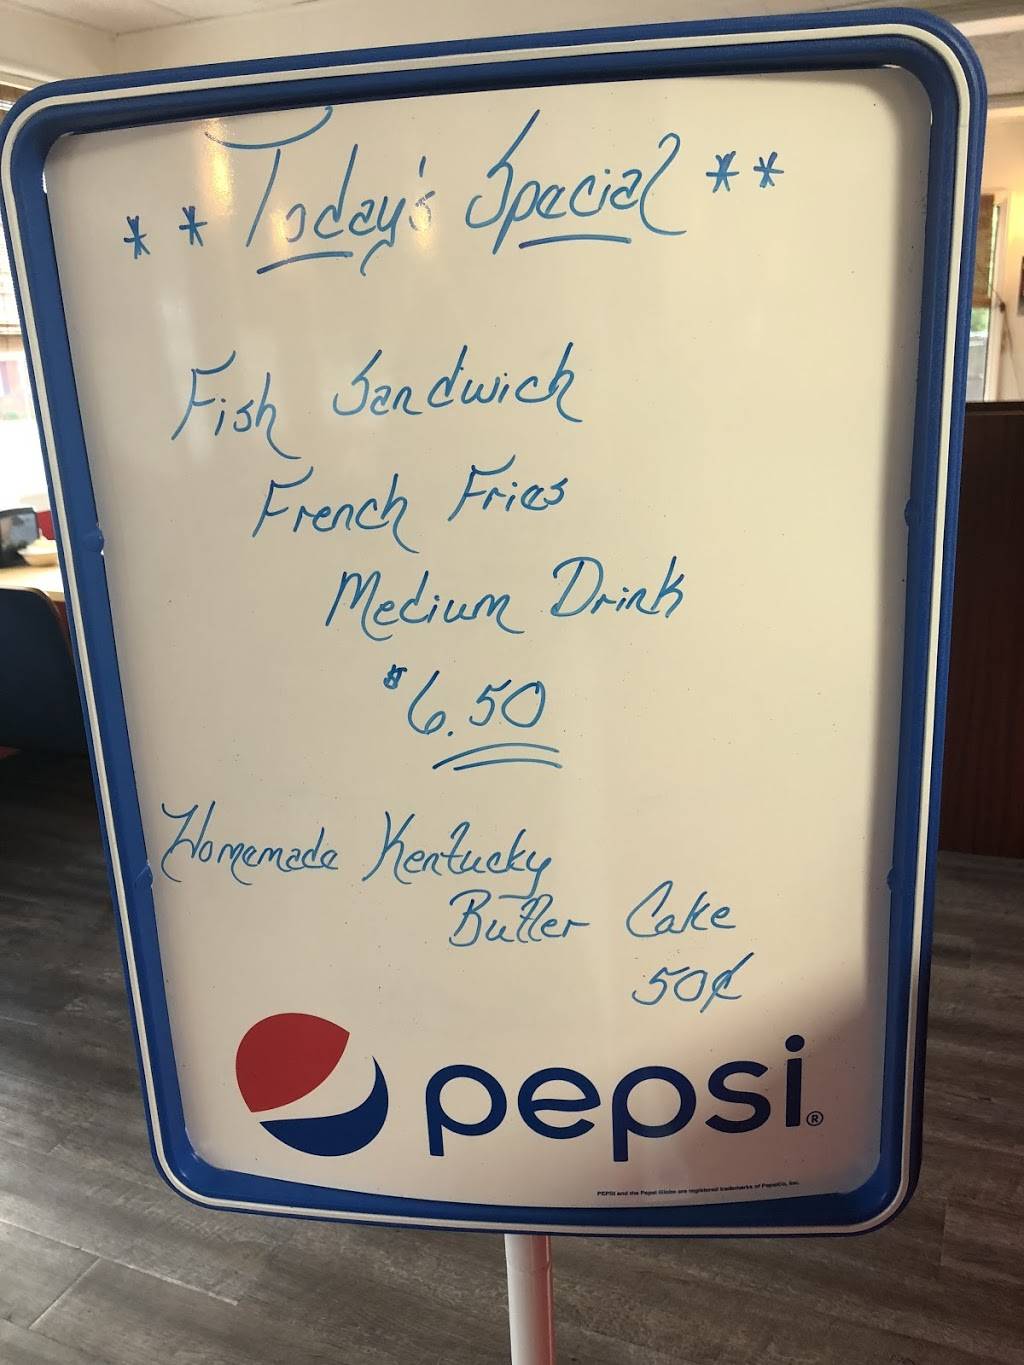 ** Today's Special **
Fish Sandwich
French Fries
Medium Drink
$6.50
Homemade Kentucky
Butter Cake
50¢
pepsi®
PEPSI and the Pepsi Globe are registered trademarks of PepsiCo, Inc.